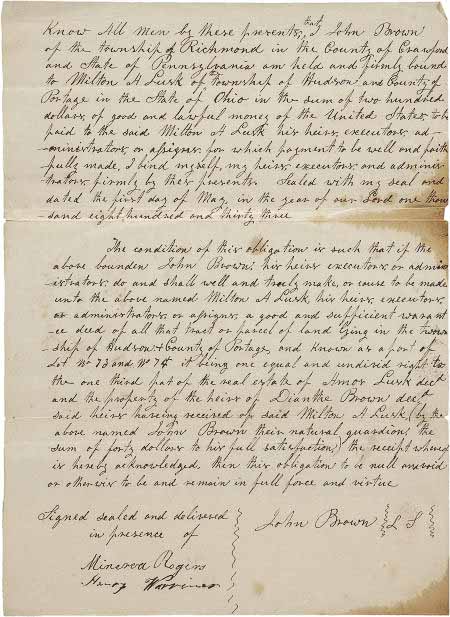 Know All men by these presents, that I John Brown
of the township of Richmond in the County of Crawford
and State of Pennsylvania am held and firmly bound
to Milton A Lusk of township of Hudson and County of
Portage in the State of Ohio in the sum of two hundred
dollars, of good and lawful money of the United States, to be
paid to the said Milton A Lusk his heirs, executors, ad-
-ministrators, or assigns; for which payment to be well and faith
-fully made, I bind myself, my heirs, executors, and adminis-
-trators firmly by these presents. Sealed with my seal and
dated the first day of May, in the year of our Lord one thou
-sand eight hundred and thirty three
The condition of this obligation is such that if the
above bounden John Brown, his heirs executors, or admin
-istrators, do and shall well and truly, make, or cause to be made
unto the above named Milton A Lusk, his heirs, executors,
or administrators, or assigns, a good and sufficient warant
-ee deed of all that tract or parcel of land lying in the town
ship of Hudson & County of Portage, and known as a part of
Lot No 73 and No 74 it being one equal and undivid right to
the one third part of the real estate of Amos Lusk decd
and the property of the heirs of Dianthe Brown decd
said heirs having received of said Milton A Lusk (by the
above named John Brown their natural guardian) the
sum of forty dollars to his full satisfaction) the receipt whereof
is hereby acknowledged, then this obligation to be null and void
or otherwis to be and remain in full force and virtue
Signed sealed and delivered
in presence of
John Brown L S
Minerva Rogers
Henry Warriner